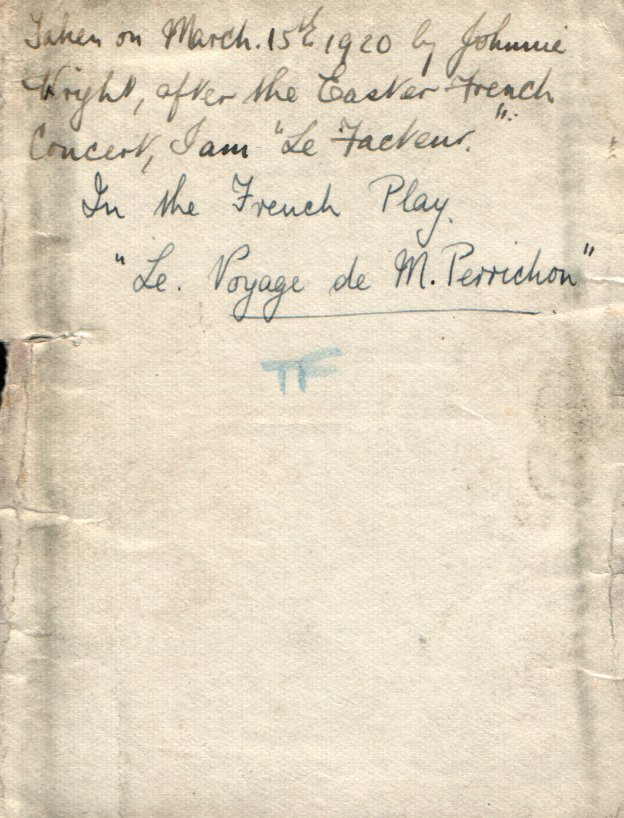 Taken on March. 15th 1920 by Johnnie
Wright, after the Easter French
Concert, I am "Le Facteur."
In the French Play.
"Le. Voyage de M. Perrichon"
TF